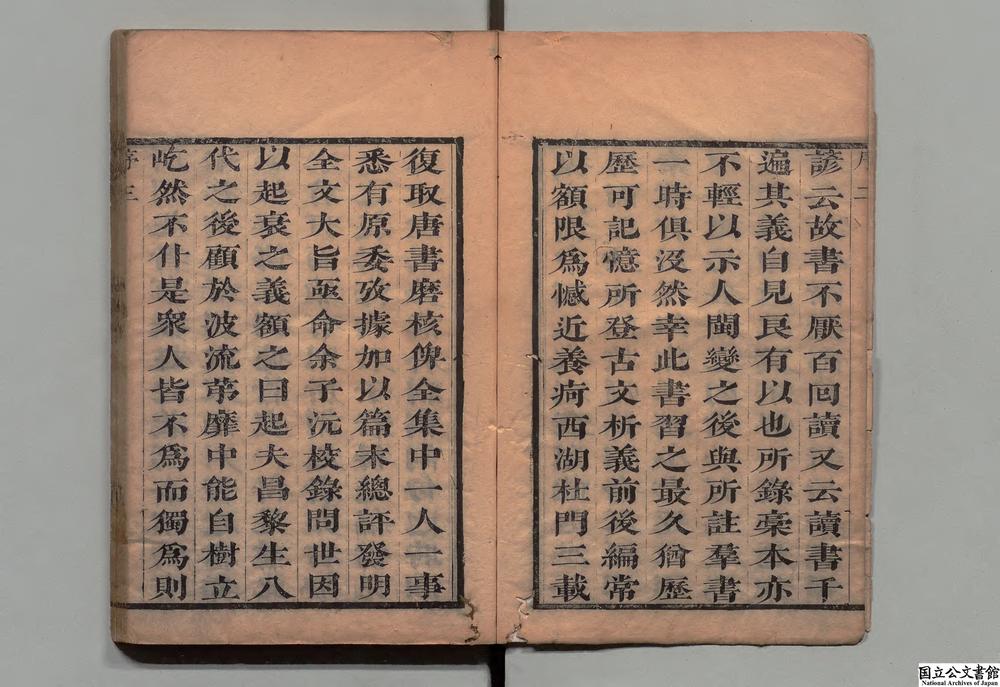 諺云故書不厭百回讀又云讀書千
遍其義自見良有以也所錄稾本亦
不輕以示人閩變之後與所註羣書
一時俱沒然幸此書習之最久猶歷
歷可記憶所登古文析義前後編常
以額限爲憾近養疴西湖杜門三載
復取唐書磨核俾全集中一人一事
悉有原委攷據加以篇末總評發明
全文大旨亟命余子沅校錄問世因
以起衰之義額之曰起夫昌黎生八
代之後顧於波流茀靡中能自樹立
屹然不什是衆人皆不爲而獨爲則
序三
国立公文書館
National Archives of Japan